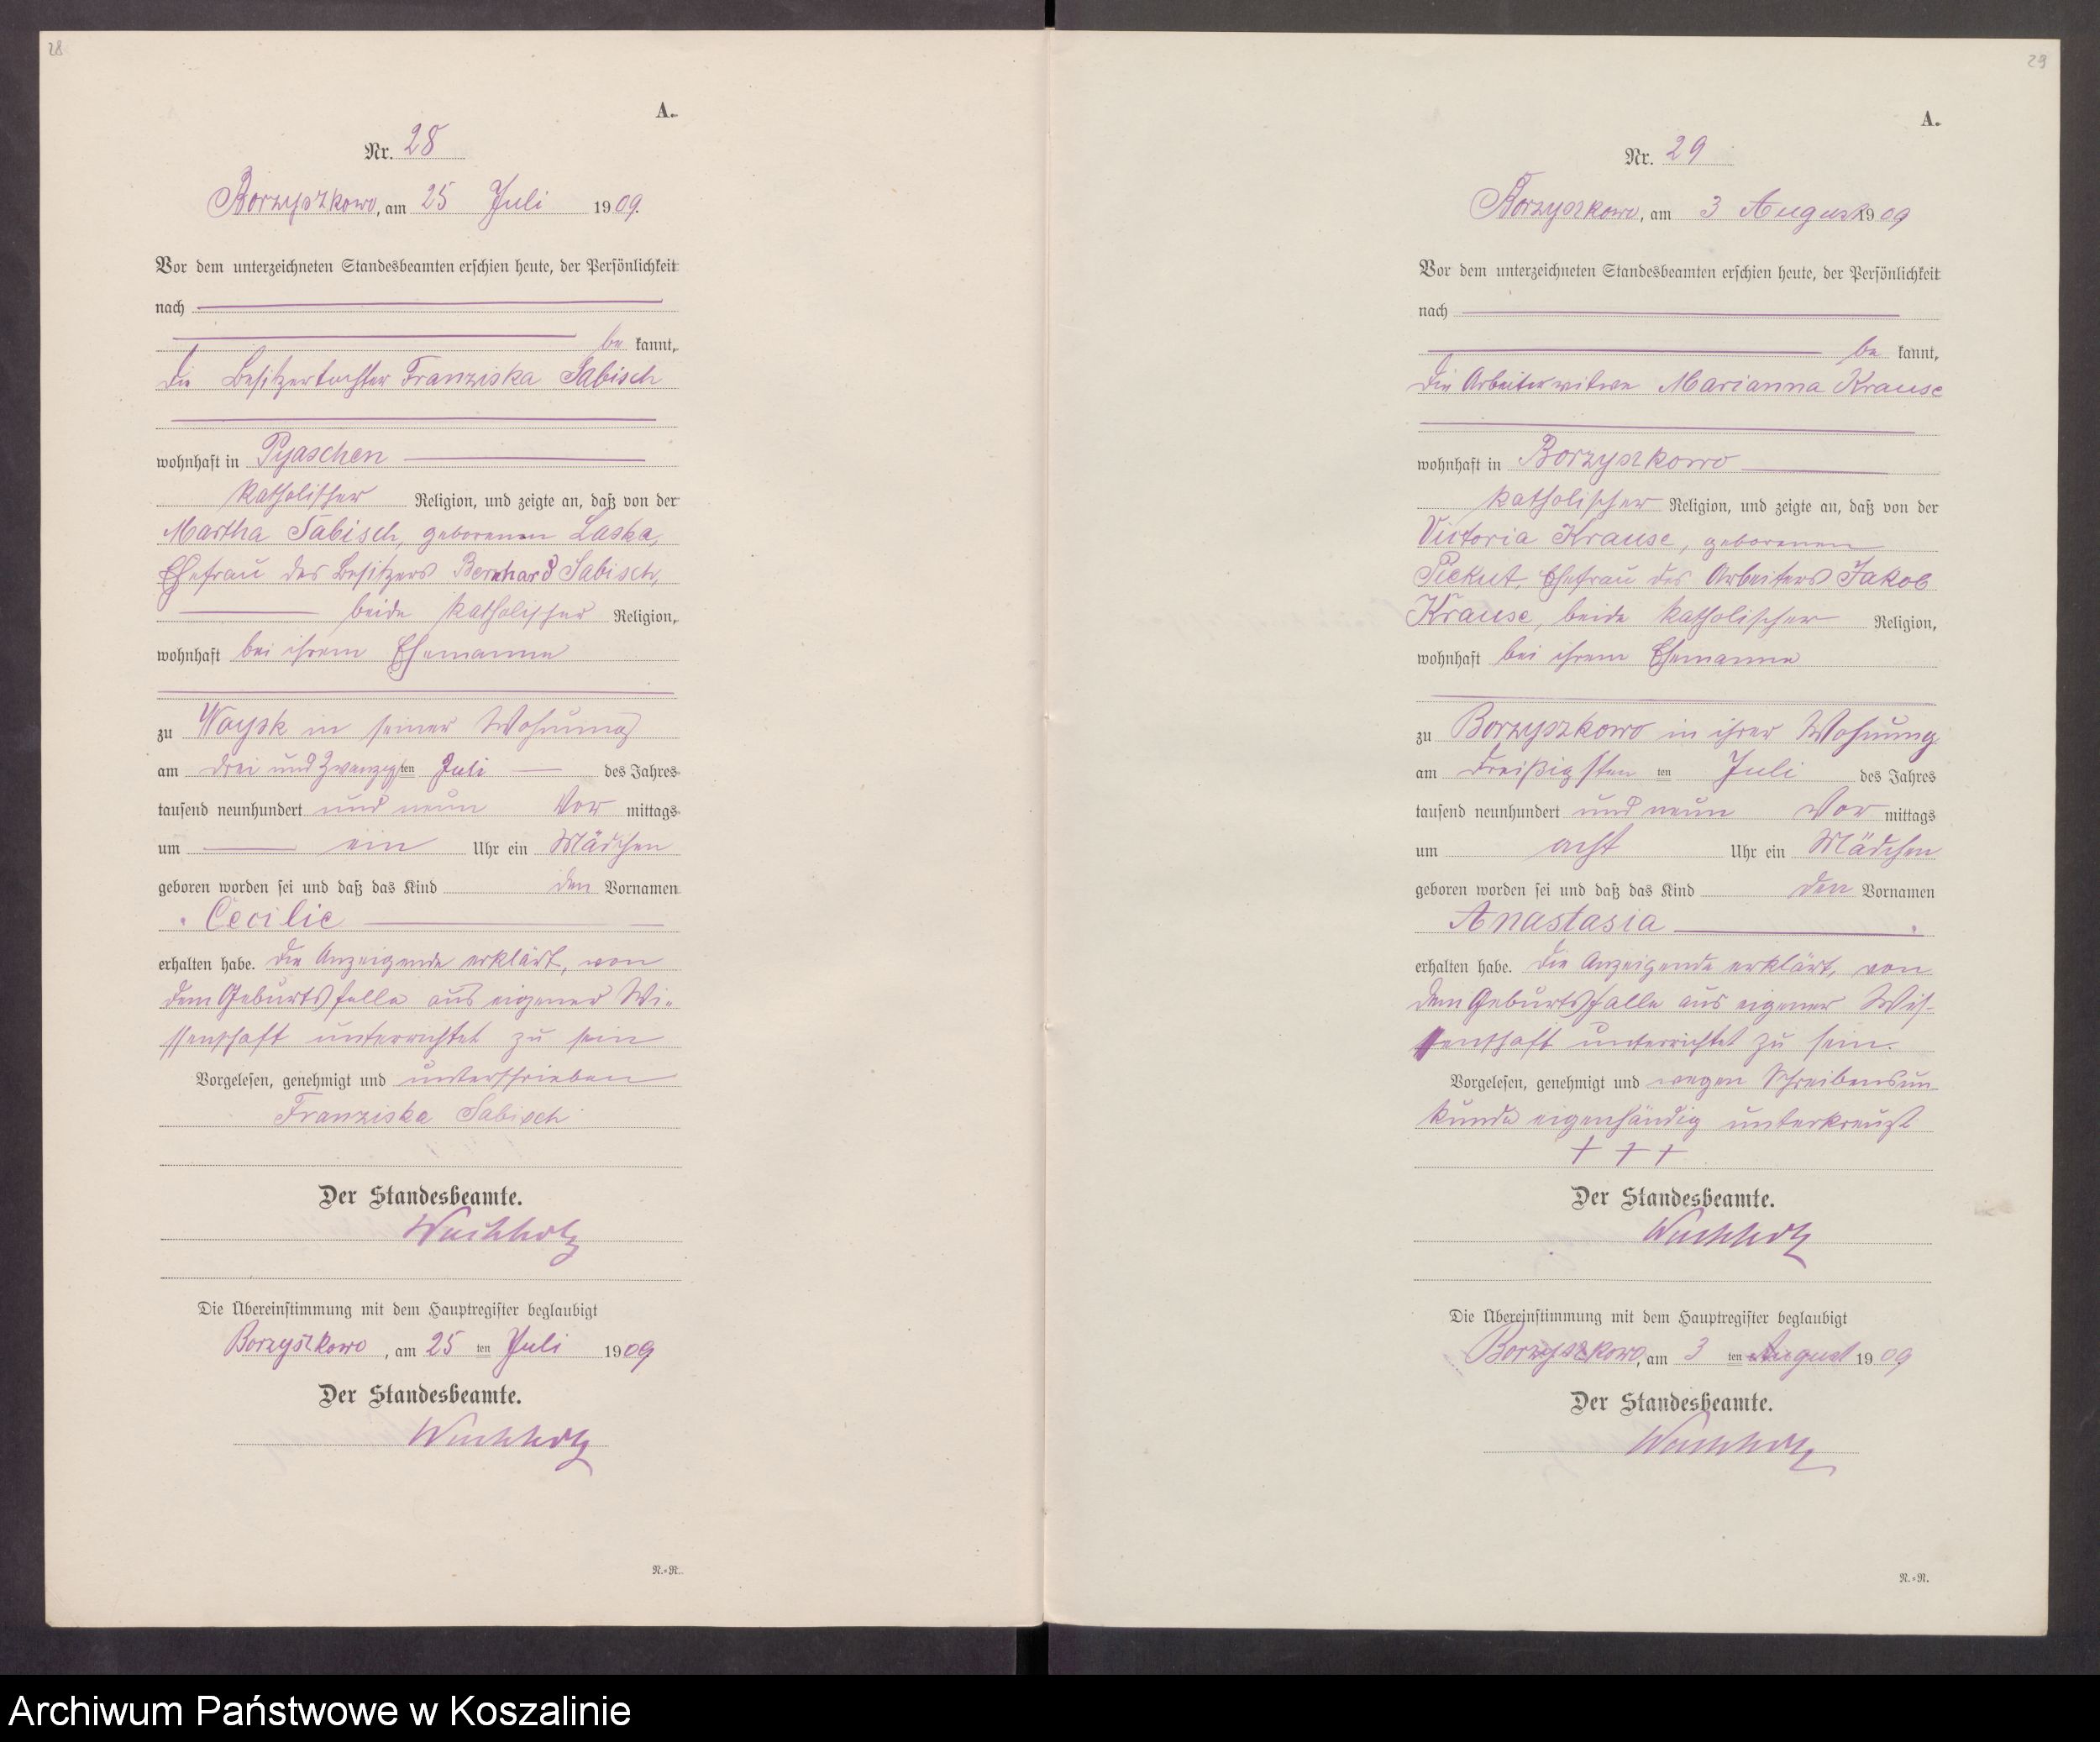 28
A.
Nr. 28
Borzyszkowo, am 25 Juli 1909.
Vor dem unterzeichneten Standesbeamten erschien heute, der Persönlichkeit
nach
be kannt,
die Besitzertochter Franziska Sabisch
wohnhaft in Pyaschen
katholischer Religion, und zeigte an, daß von der
Martha Sabisch, geborenen Laska,
Ehefrau des Besitzers Bernhard Sabisch,
beide katholischer Religion,
wohnhaft bei ihrem Ehemanne
zu Woysk in seiner Wohnung
am drei und zwanzigsten Juli des Jahres
tausend neunhundert und neun Vor mittags
um ein Uhr ein Mädchen
geboren worden sei und daß das Kind den Vornamen
Cecilie
erhalten habe. Die Anzeigende erklärt, von
dem Geburtsfalle aus eigener Wi-
ssenschaft unterrichtet zu sein
Vorgelesen, genehmigt und unterschrieben
Franziska Sabisch
Der Standesbeamte.
Wachholz
Die Übereinstimmung mit dem Hauptregister beglaubigt
Borzyszkowo, am 25 ten Juli 1909
Der Standesbeamte.
Wachholz
N.=N.
29
A.
Nr. 29
Borzyszkowo, am 3 August 1909
Vor dem unterzeichneten Standesbeamten erschien heute, der Persönlichkeit
nach
be kannt,
die Arbeiterwitwe Marianna Krause
wohnhaft in Borzyszkowo
katholischer Religion, und zeigte an, daß von der
Victoria Krause, geborenen
Pickut, Ehefrau des Arbeiters Jakob
Krause, beide katholischer Religion,
wohnhaft bei ihrem Ehemanne
zu Borzyszkowo in ihrer Wohnung
am dreißigsten ten Juli des Jahres
tausend neunhundert und neun Vor mittags
um acht Uhr ein Mädchen
geboren worden sei und daß das Kind den Vornamen
Anastasia
erhalten habe. Die Anzeigende erklärt, von
dem Geburtsfalle aus eigener Wis-
senschaft unterrichtet zu sein.
Vorgelesen, genehmigt und wegen Schreibensun-
kunde eigenhändig unterkreuzt
+ + +
Der Standesbeamte.
Wachholz
Die Übereinstimmung mit dem Hauptregister beglaubigt
Borzyszkowo, am 3 ten August 1909
Der Standesbeamte.
Wachholz
N.=N.
Archiwum Państwowe w Koszalinie